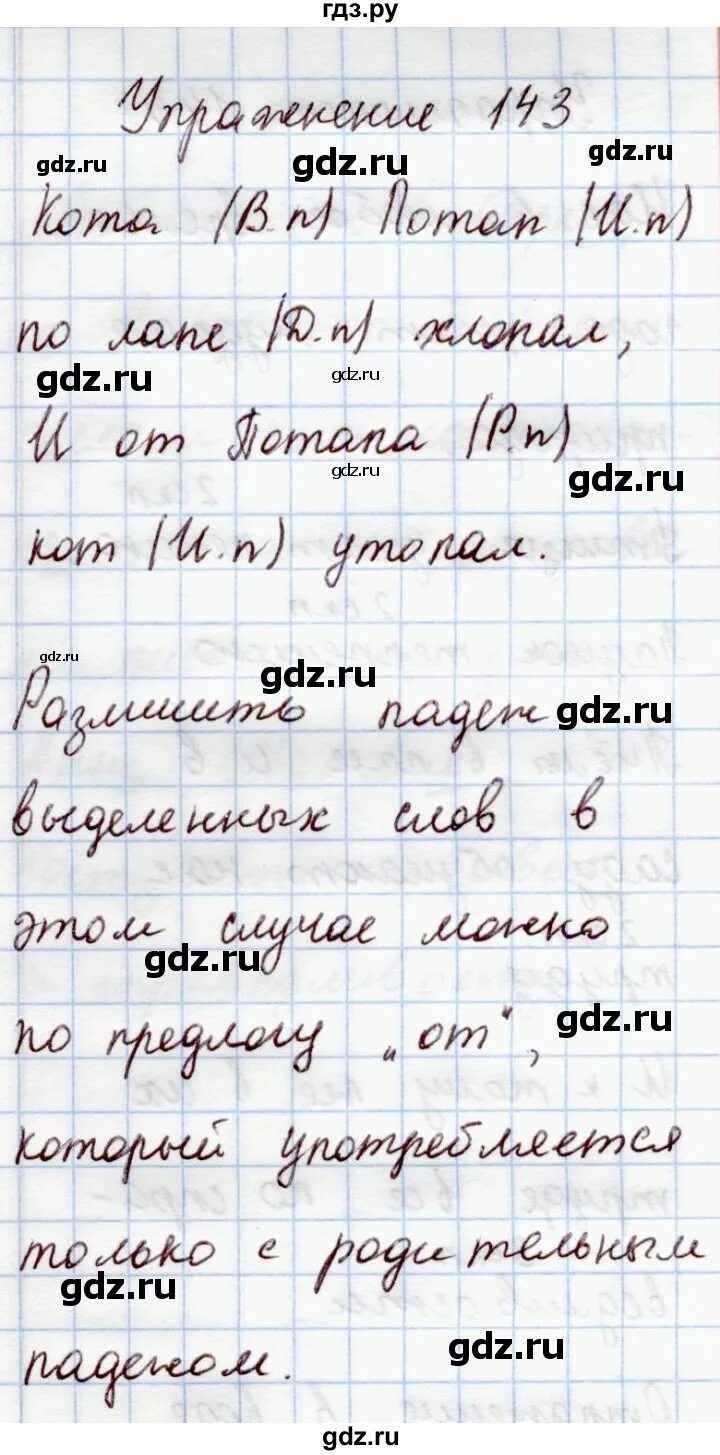 гдз.ру
Упражнение 143
gdz.ru gdz.ru gdz.ru
Кота (В.п) Потап (И.п)
по лапе (Д.п) хлопал,
gdz.ru gdz.ru
И от Потапа (Р.п)
gdz.ru gdz.ru
кот (И.п) утопал.
gdz.ru gdz.ru gdz.ru
Размишить падеж
выделенных слов в
этом случае можно
gdz.ru gdz.ru
по предлогу „от",
который употребляется
только с родительным
gdz.ru gdz.ru
падежом.
gdz.ru